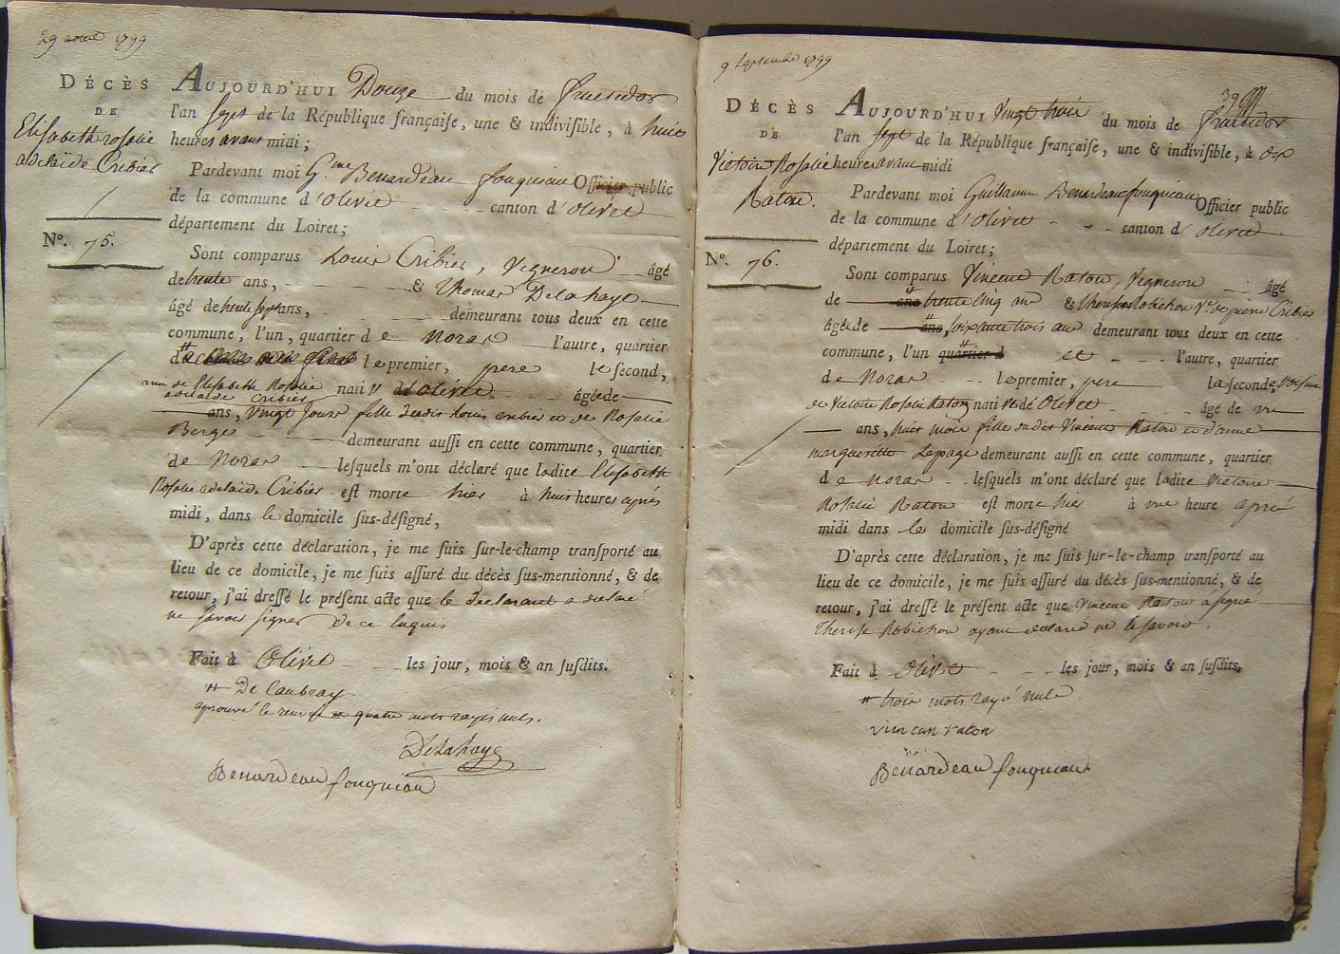 29 aout 1799
DÉCÈS
DE
Elisabeth rosalie
adelaide Cribier
N°. 75.
AUJOURD'HUI Douze du mois de fructidor
l'an sept de la République françaiſe, une & indiviſible, à huit
heures avant midi ;
Pardevant moi G.me Benardeau fouqueau Officier public
de la commune d'Olivet canton d'Olivet
département du Loiret;
Sont comparus Louis Cribier, Vigneron âgé
de trente ans, & Thomas Delahaye
âgé de trente sept ans, demeurant tous deux en cette
commune, l'un, quartier de Noras l'autre, quartier
d le premier, pere le ſecond,
de Elisabeth Rosalie
adelaide Cribier nati v d'olivet âgée de
ans, Vingt Jours fille dudit Louis cribier et de Rosalie
Berges demeurant auſſi en cette commune, quartier
de Noras leſquels m'ont déclaré que ladite Elisabeth
Rosalie adelaide Cribier eſt morte hier à huit heures après
midi, dans le domicile ſus-déſigné,
D'après cette déclaration, je me ſuis ſur-le-champ tranſporté au
lieu de ce domicile, je me ſuis aſſuré du décès ſus-mentionné, & de
retour, j'ai dreſſé le préſent acte que le declarant a declaré
ne savoir signer de ce enquis
Fait à Olivet les jour, mois & an ſuſdits.
# De Caubray
aprouvé le renvoi et quatre mots rayés nuls.
Delahaye
Benardeau fouqueau
9 septembre 1799
39
DÉCÈS
DE
Victoire Rosalie
Raton.
N°. 76.
AUJOURD'HUI Vingt trois du mois de fructidor
l'an sept de la République françaiſe, une & indiviſible, à dix
heure avant midi
Pardevant moi Guillaume Benardeau fouqueau Officier public
de la commune d'Olivet canton d'Olivet
département du Loiret;
Sont comparus Vincent Raton, Vigneron âgé
de ans trente cinq ans & therese Robichon V.e de pierre Cribier
âgé de ans, soixante trois ans demeurant tous deux en cette
commune, l'un quartier d et l'autre, quartier
de Noras le premier, pere la ſeconde,
de Victoire Rosalie Raton nati ve de Olivet âgé de un
ans, huit mois fille dudit Vincent Raton et d'anne
marguerite Lepage demeurant auſſi en cette commune, quartier
de Noras leſquels m'ont déclaré que ladite Victoire
Rosalie Raton eſt morte hier à une heure après
midi dans le domicile ſus-déſigné
D'après cette déclaration, je me ſuis ſur-le-champ tranſporté au
lieu de ce domicile, je me ſuis aſſuré du décès ſus-mentionné, & de
retour, j'ai dreſſé le préſent acte que Vincent Raton a signé
Therese Robichon ayant declaré ne le savoir.
Fait à Olivet les jour, mois & an ſuſdits.
# trois mots rayé nuls
vincan raton
Benardeau fouqueau